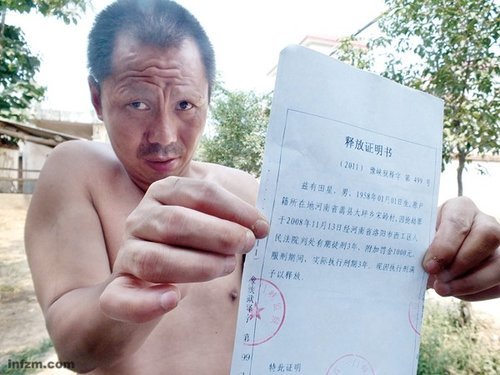 释放证明书
(2011) 豫狱释字 第 499 号
兹有田星,男,1958年01月01日生,原户
籍所在地河南省嵩县大坪乡宋岭村,因
于2008年11月13日经河南省洛阳市西工区人
民法院判处有期徒刑3年、附加罚金1000元。
服刑期间,实际执行刑期3年。现因执行刑满
予以释放。
特此证明
第
99
infzm.com